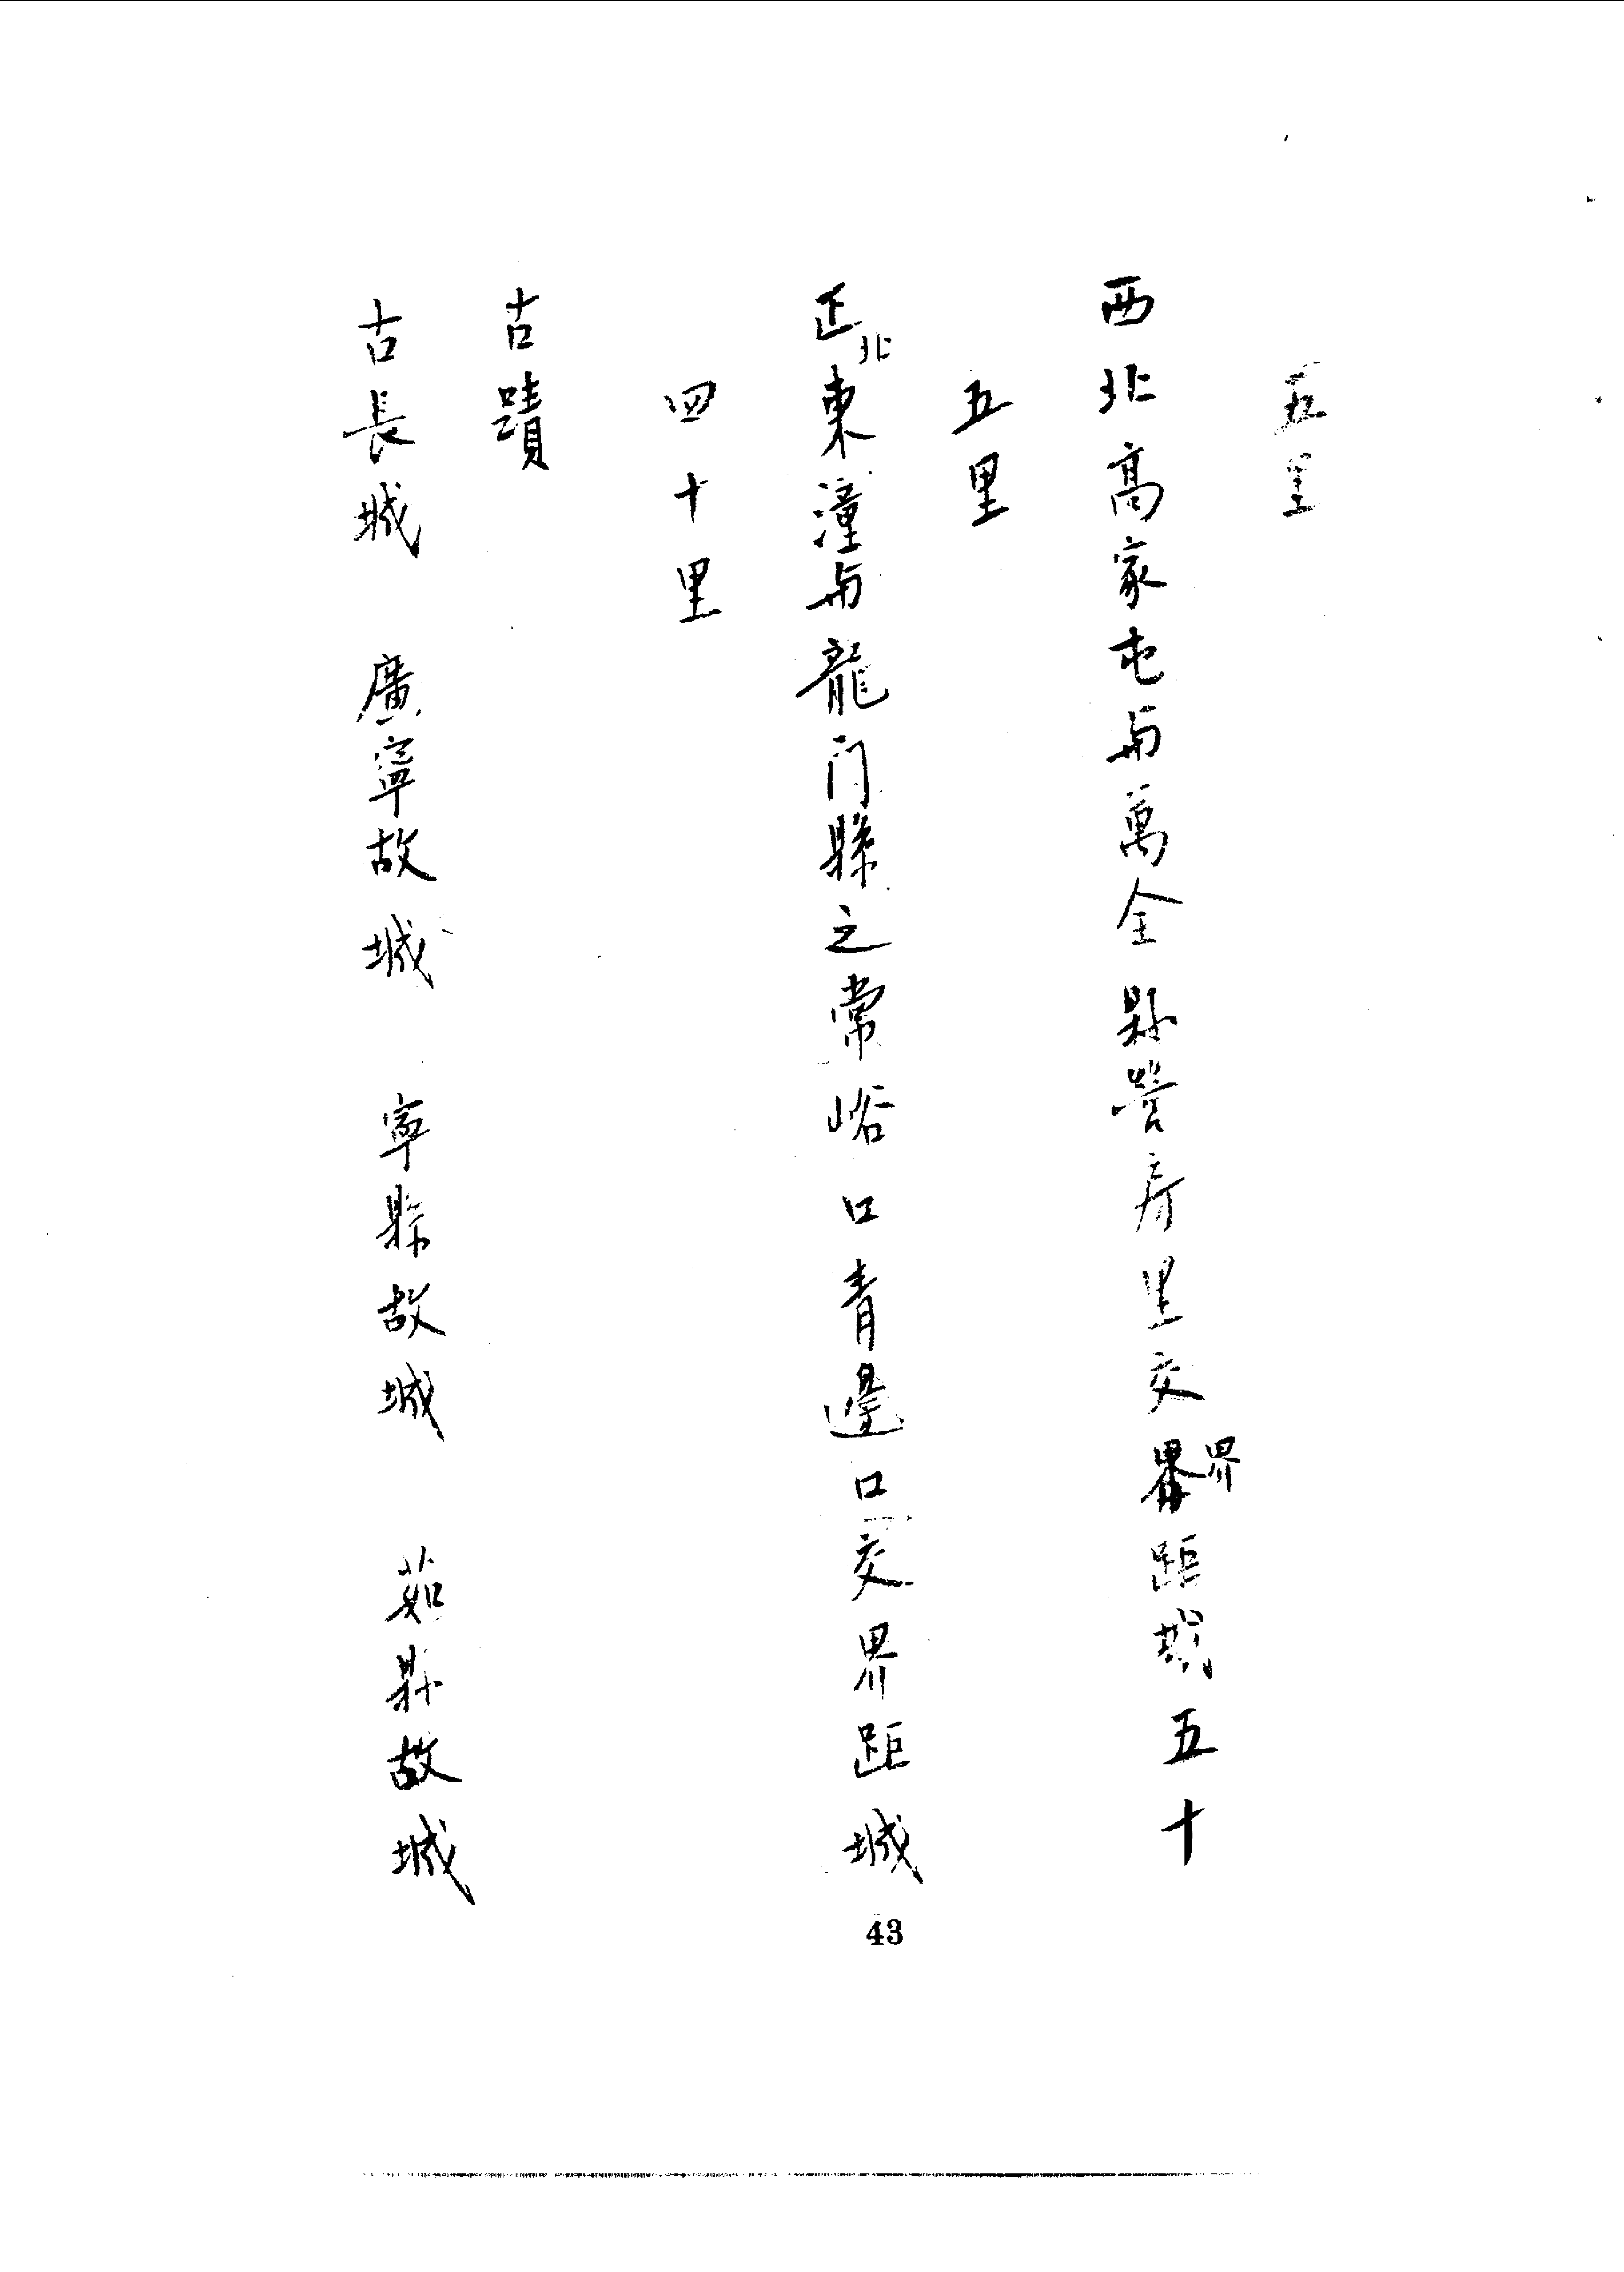 五里
西北高家屯与萬全縣营房里交界界距城五十
五里
正北東潼与龍门縣之常峪口青邊口交界距城
四十里
古蹟
古長城　廣寧故城　寧縣故城　茹縣故城
43